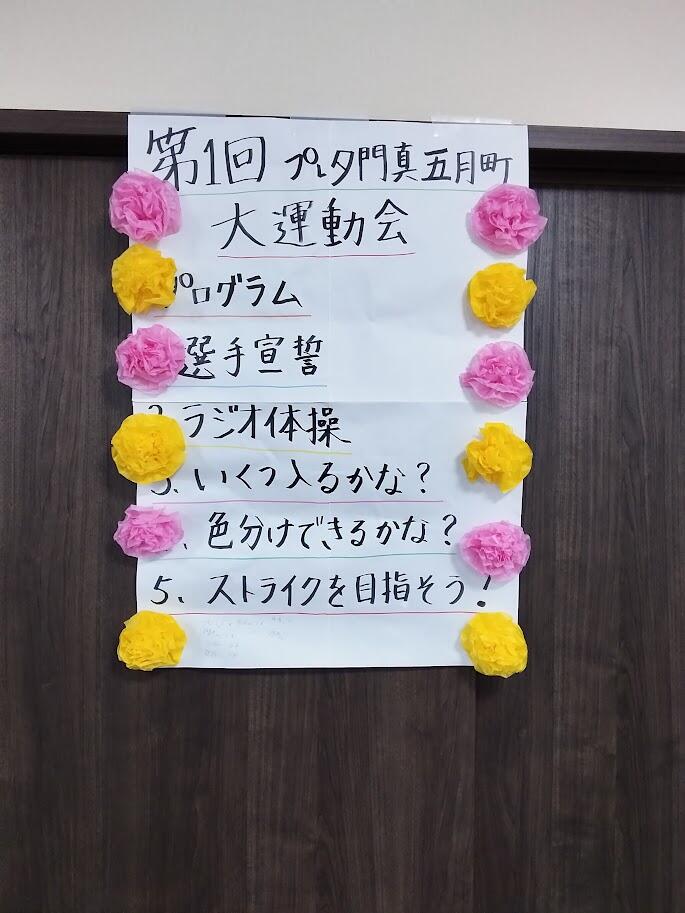 第1回 プレタ門真五月町
大運動会
プログラム
選手宣誓
ラジオ体操
3. いくつ入るかな?
色分けできるかな?
5. ストライクを目指そう!